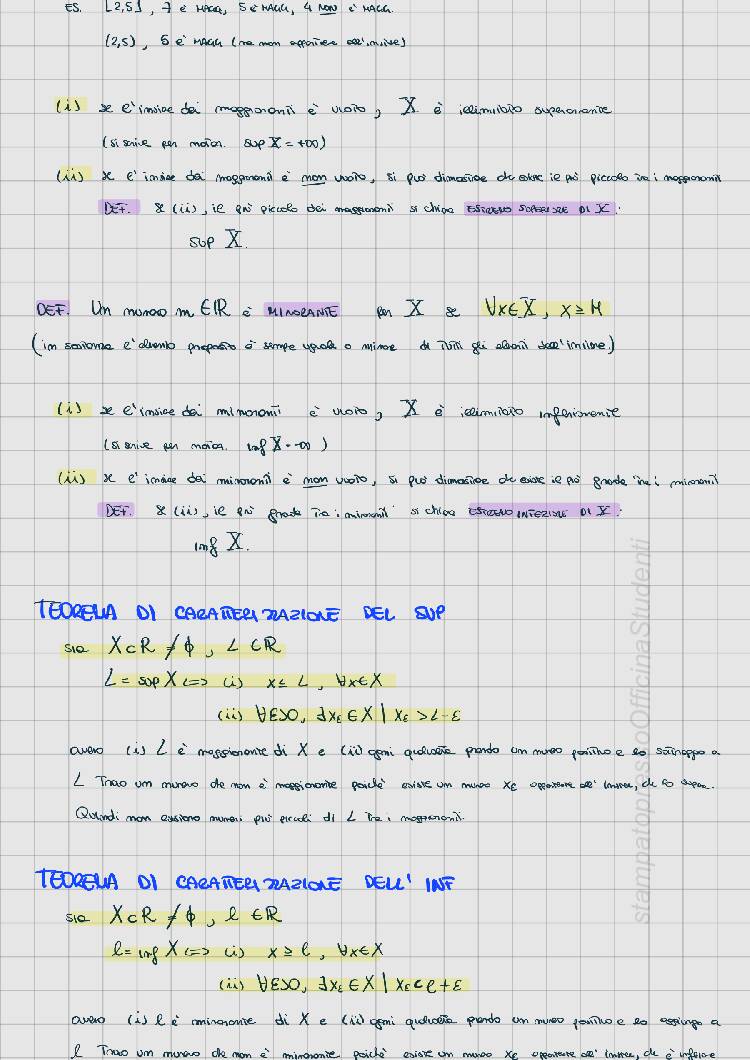 ES. [2,5], 7 è MAGG, 5 è MAGG, 4 NON è MAGG.
(2,5), 5 è MAGG (ma non appartiene all'insieme)
(i) se l'insieme dei maggioranti è vuoto, X è illimitato superiormente
(si scrive per notaz. sup X = +∞)
(ii) se l'insieme dei maggioranti è non vuoto, si può dimostrare che esiste il più piccolo tra i maggioranti
DEF. Se (ii), il più piccolo dei maggioranti si chiama ESTREMO SUPERIORE DI X.
sup X.
DEF. Un numero m ∈ ℝ è MINORANTE per X se ∀x∈X, x ≥ M
(in sostanza l'elemento proposto è sempre uguale o minore di tutti gli elementi dell'insieme.)
(i) se l'insieme dei minoranti è vuoto, X è illimitato inferiormente
(si scrive per notaz. inf X = -∞)
(ii) se l'insieme dei minoranti è non vuoto, si può dimostrare che esiste il più grande tra i minoranti
DEF. Se (ii), il più grande tra i minoranti si chiama ESTREMO INFERIORE DI X.
inf X.
TEOREMA DI CARATTERIZZAZIONE DEL SUP
sia X⊂R ≠ ϕ, L ∈ ℝ
L = sup X <=> (i) x ≤ L, ∀x∈X
(ii) ∀ε>0, ∃xε ∈ X | xε > L-ε
ovvero (i) L è maggiorante di X e (ii) ogni qualvolta prendo un numero positivo e lo sottraggo a
L trovo un numero che non è maggiorante poiché esiste un numero xε appartenente all'insieme, che lo supera.
Quindi non esistono numeri più piccoli di L tra i maggioranti.
TEOREMA DI CARATTERIZZAZIONE DELL'INF
sia X⊂R ≠ ϕ, l ∈ ℝ
l = inf X <=> (i) x ≥ l, ∀x∈X
(ii) ∀ε>0, ∃xε ∈ X | xε < l+ε
ovvero (i) l è minorante di X e (ii) ogni qualvolta prendo un numero positivo e lo aggiungo a
l trovo un numero che non è minorante poiché esiste un numero xε appartenente all'insieme, che è inferiore
stampatopressoOfficinaStudenti